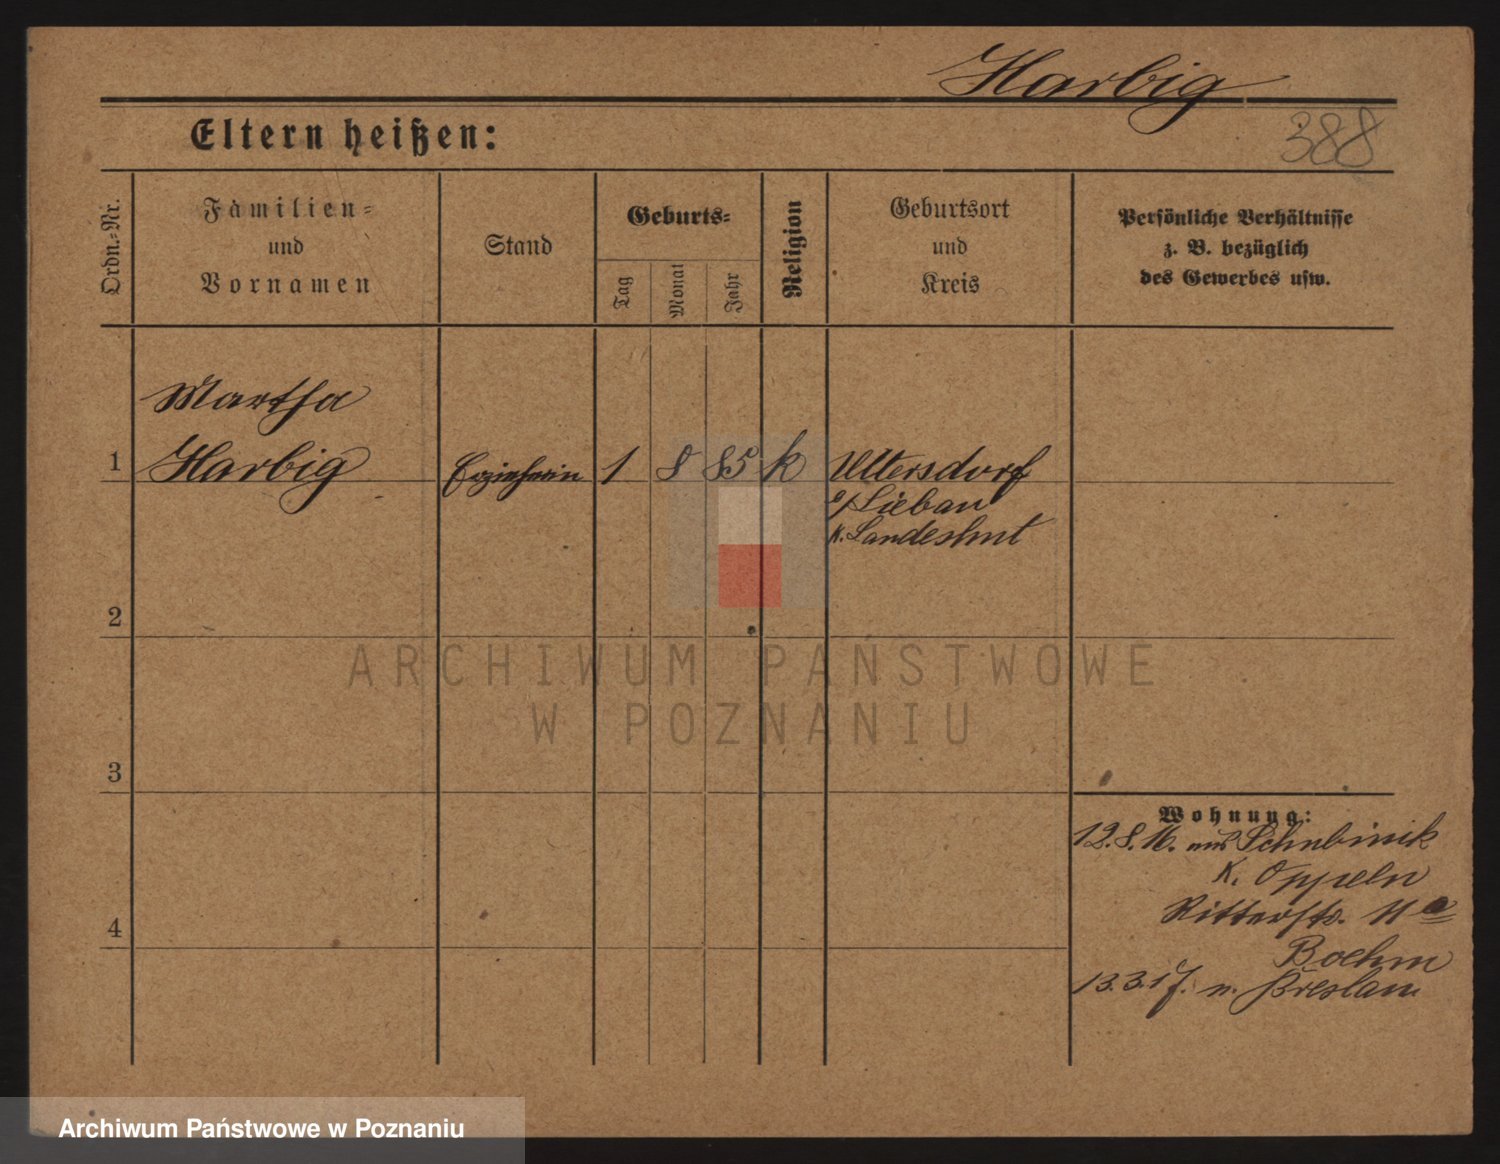 Harbig
388
Eltern heißen:
Ordn.-Nr.
Familien-
und
Vornamen
Stand
Geburts-
Tag
Monat
Jahr
Religion
Geburtsort
und
Kreis
Persönliche Verhältnisse
z. B. bezüglich
des Gewerbes usw.
Martha
1 Harbig Erzieherin 1 8 85 k Ullersdorf
o/Liebau
K. Landeshut
2
3
4
Wohnung:
12.8.16. aus Schubinik
K. Oppeln
Ritterstr. 11a
Boehm
13.3.17. n. Breslau
ARCHIWUM PAŃSTWOWE
W POZNANIU
Archiwum Państwowe w Poznaniu